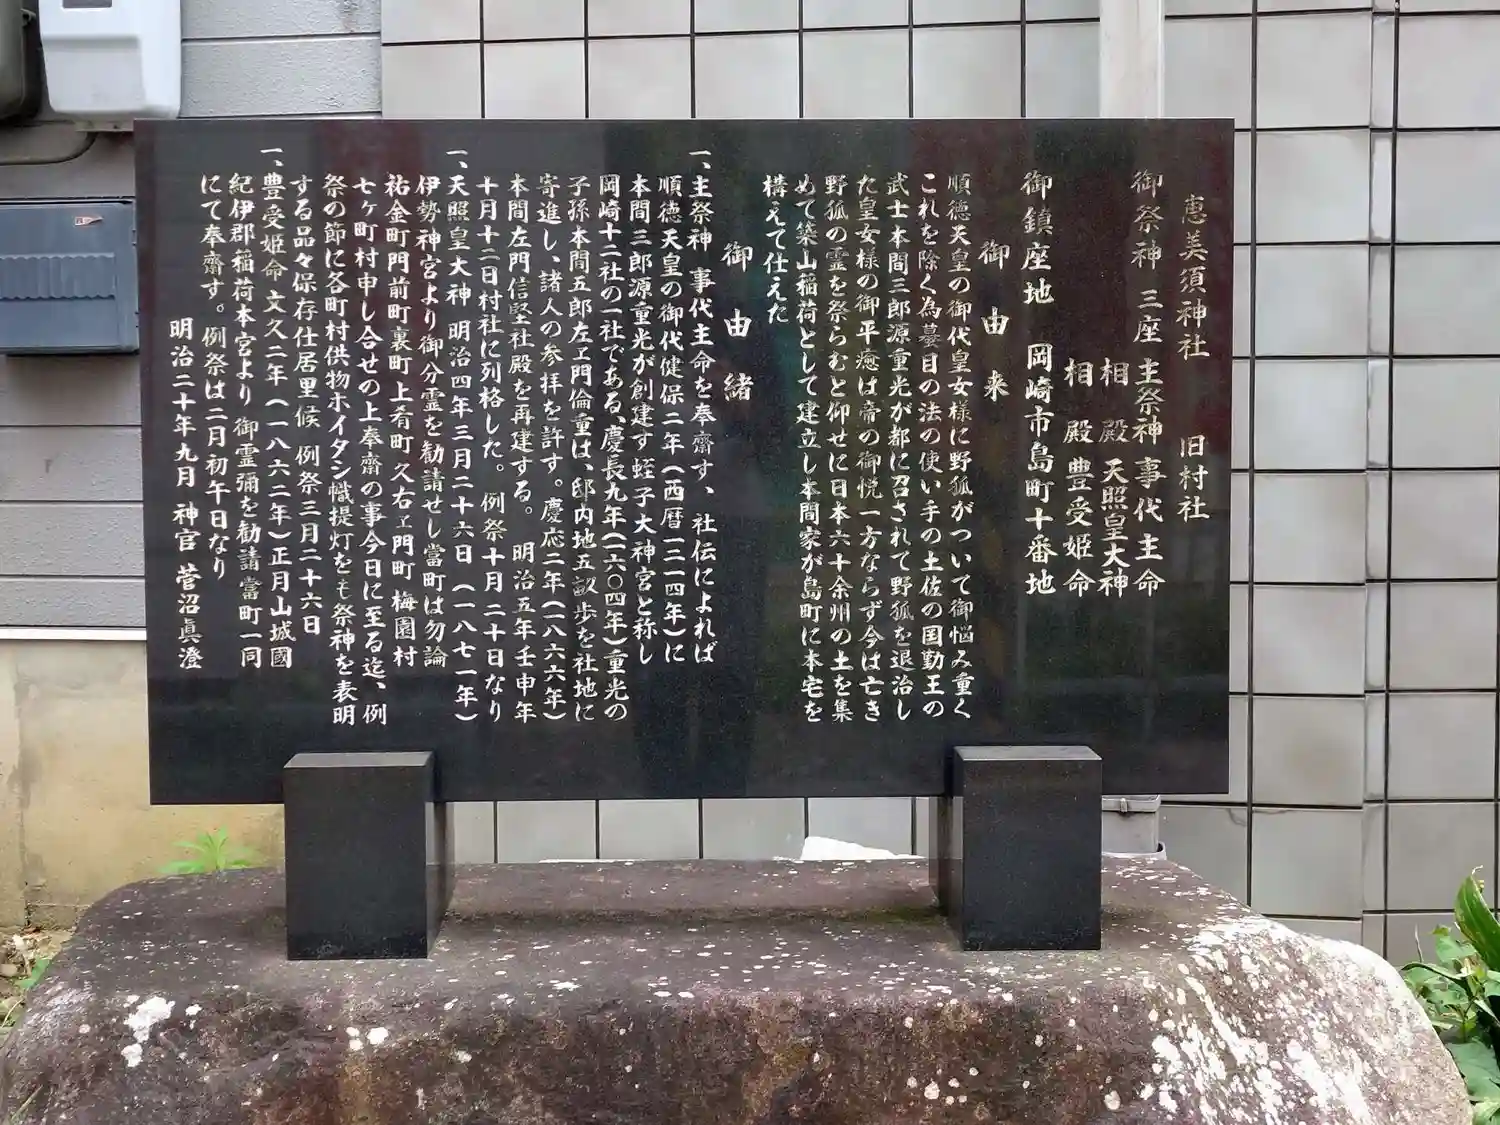 恵美須神社 旧村社
御祭神 三座 主祭神 事代主命
相殿 天照皇大神
相殿 豊受姫命
御鎮座地 岡崎市島町十番地
御由来
順徳天皇の御代皇女様に野狐がついて御悩み重く
これを除く為蟇目の法の使い手の土佐の国勤王の
武士本間三郎源重光が都に召されて野狐を退治し
た皇女様の御平癒は帝の御悦一方ならず今は亡き
野狐の霊を祭らむと仰せに日本六十余州の土を集
めて築山稲荷として建立し本間家が島町に本宅を
構えて仕えた
御由緒
一、主祭神 事代主命を奉齋す、社伝によれば
順徳天皇の御代健保二年(西暦一二一四年)に
本間三郎源重光が創建す蛭子大神宮と称し
岡崎十二社の一社である、慶長九年(一六〇四年)重光の
子孫本間五郎左ヱ門倫重は、邸内地五畝歩を社地に
寄進し、諸人の参拝を許す。慶応二年(一八六六年)
本間左門信堅社殿を再建する。 明治五年壬申年
十月十二日村社に列格した。例祭十月二十日なり
一、天照皇大神 明治四年三月二十六日(一八七一年)
伊勢神宮より御分霊を勧請せし當町は勿論
祐金町門前町裏町上肴町久右ヱ門町梅園村
七ヶ町村申し合せの上奉齋の事今日に至る迄、例
祭の節に各町村供物ホイタシ幟提灯をも祭神を表明
する品々保存仕居里候 例祭三月二十六日
一、豊受姫命 文久二年(一八六二年)正月山城國
紀伊郡稲荷本宮より御霊彌を勧請當町一同
にて奉齋す。例祭は二月初午日なり
明治二十年九月 神官 菅沼眞澄